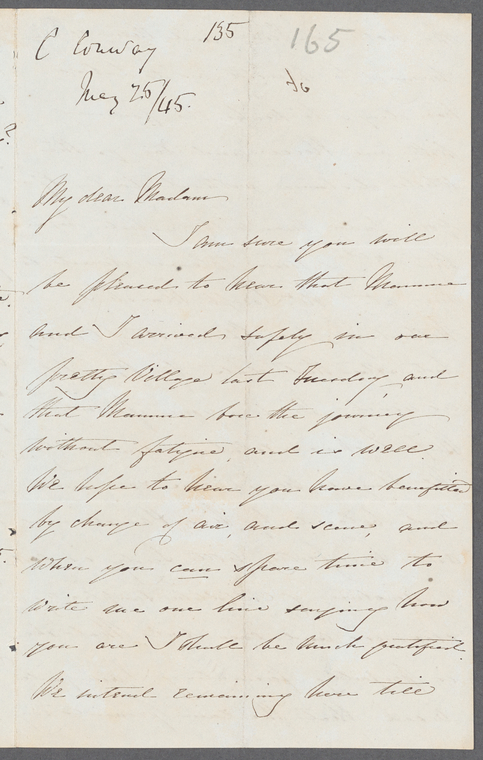 135
165
C Conway
May 25/45.
My dear Madam
I am sure you will
be pleased to hear that Mamma
and I arrived safely in our
pretty Village last Tuesday, and
that Mamma bore the journey
without fatigue, and is well.
We hope to hear you have benefitted
by change of air, and scene, and
when you can spare time to
write me one line saying how
you are I shall be much gratified.
We intend remaining here till